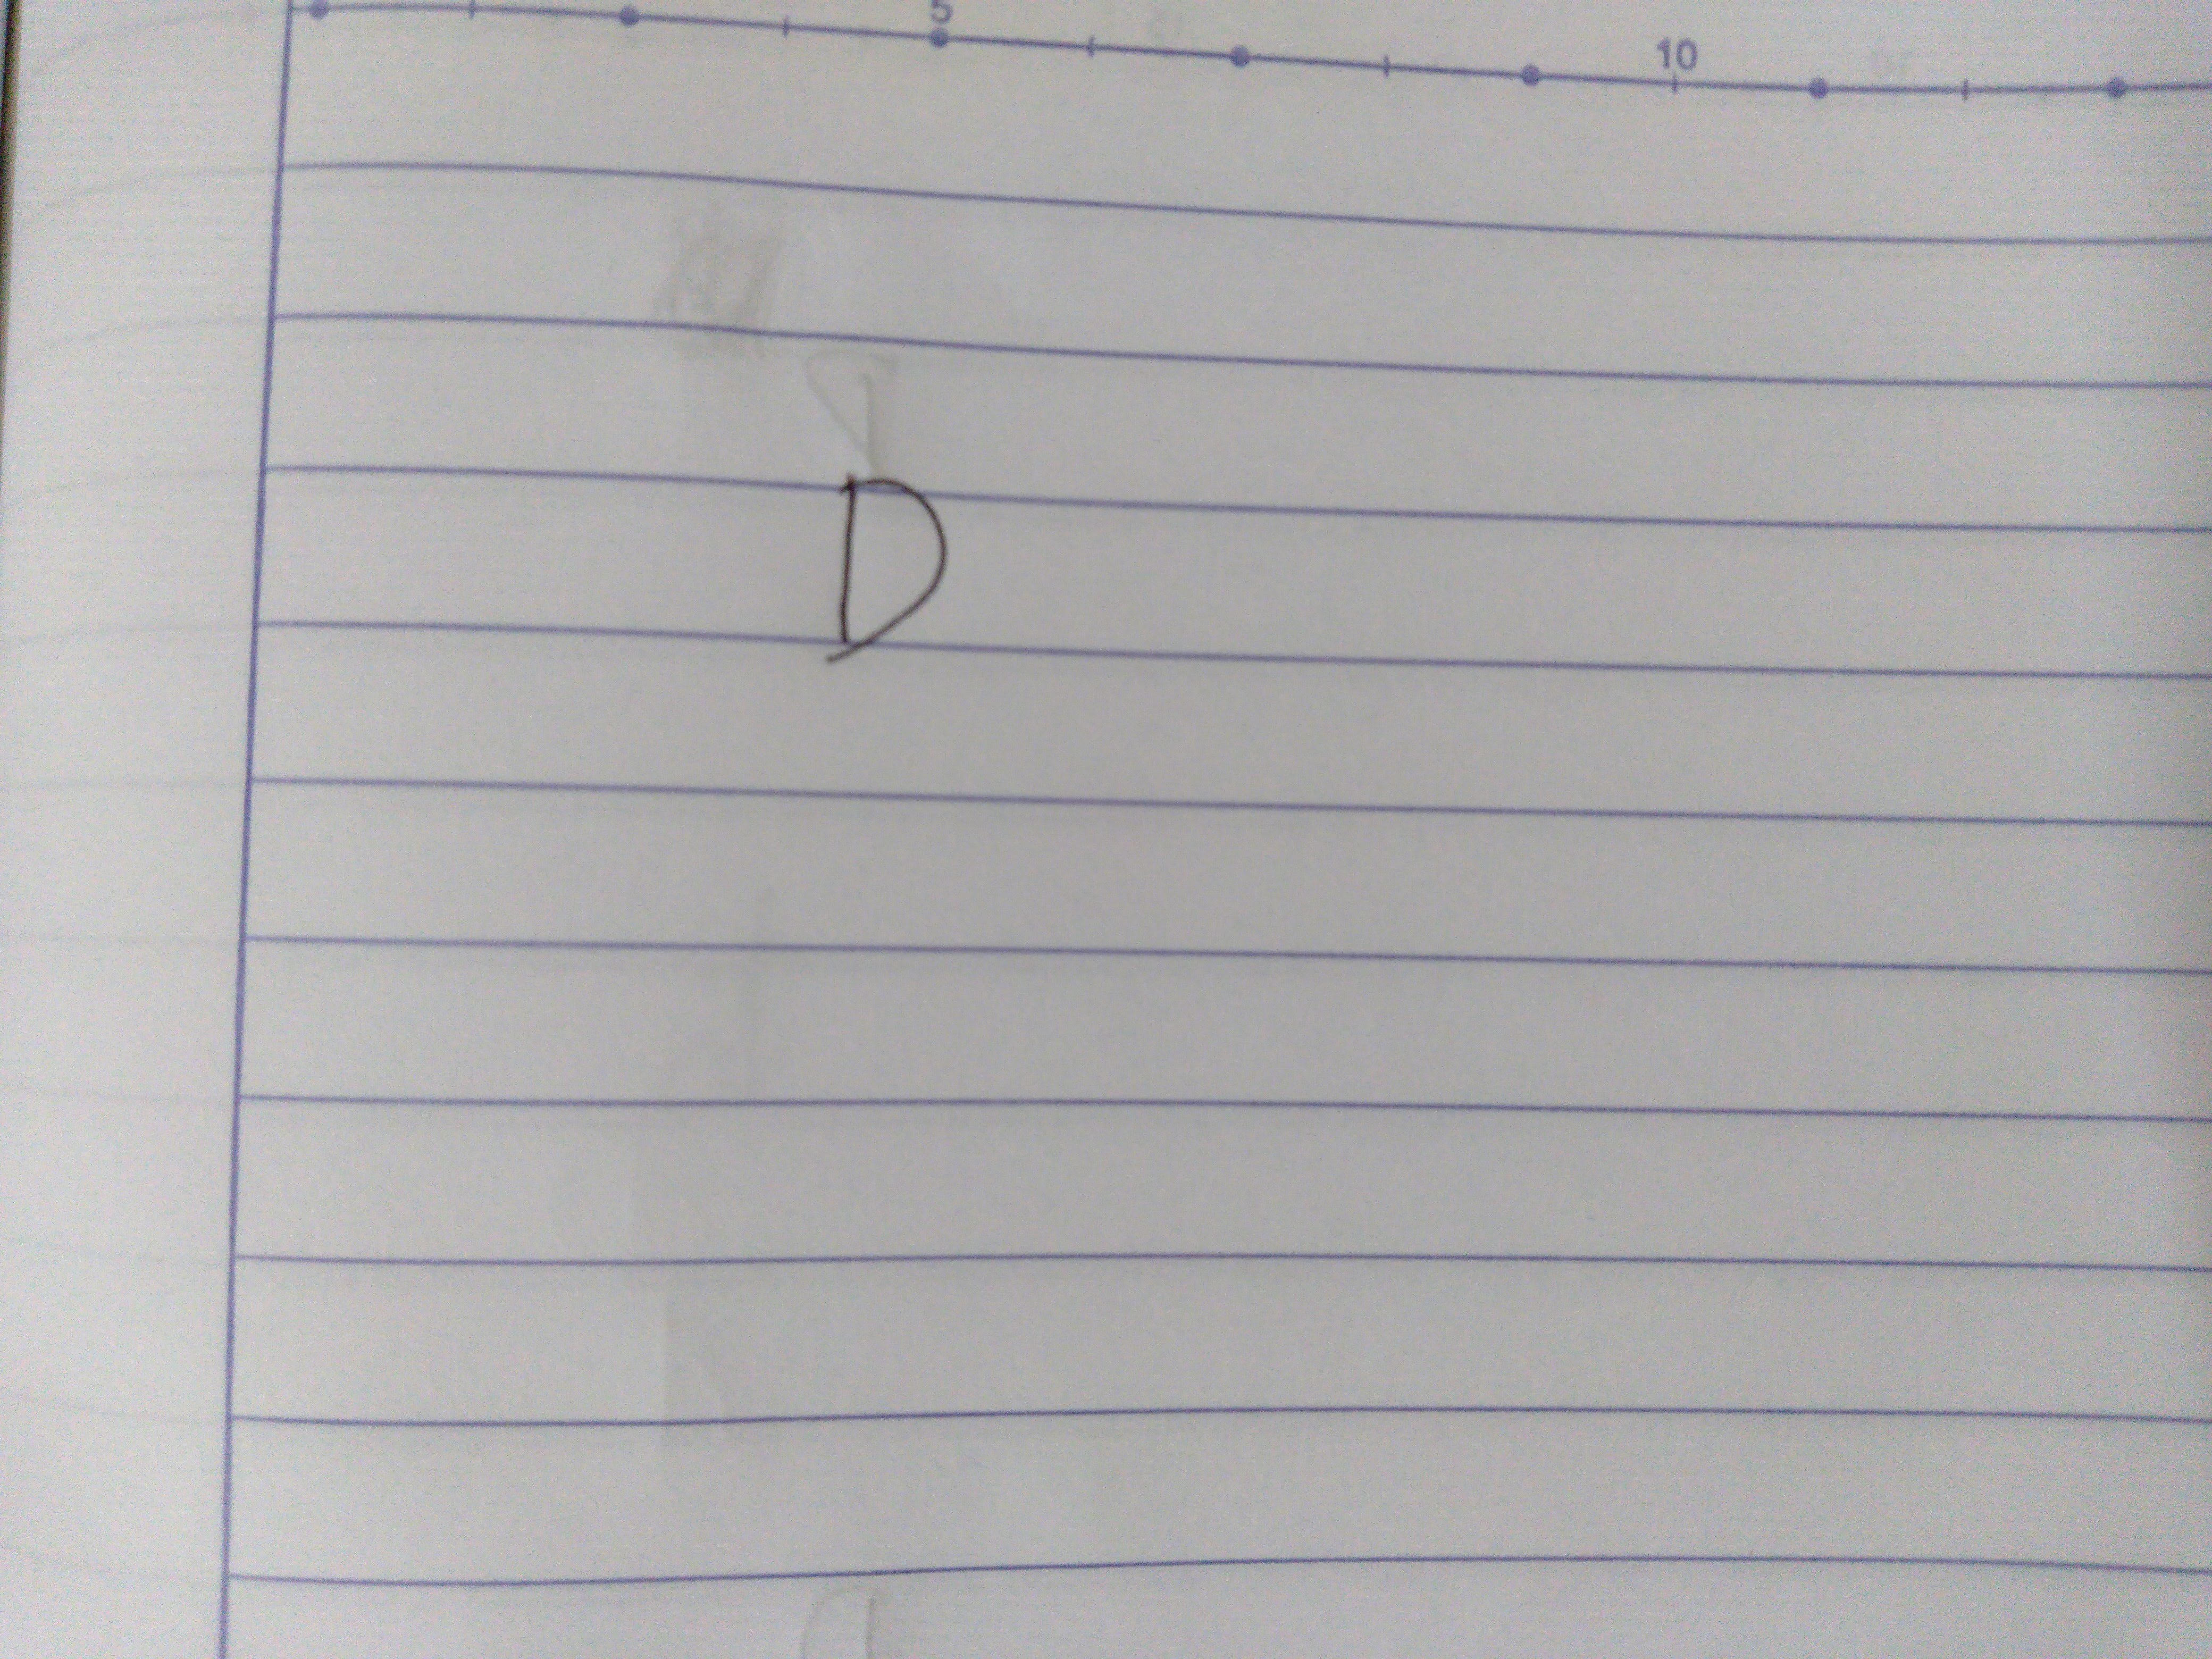 5 10
D